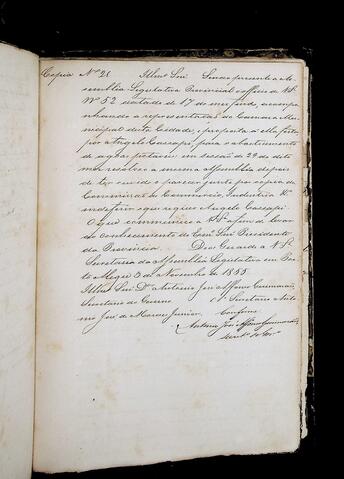 Copia Nº 21 Illmo Snr Sendo presente a As-
semblea Legislativa Provincial o officio de V.S.
Nº 52 datado de 17 do mez findo, acompa-
nhando a representação da Camara Mu-
nicipal desta Cidade, e proposta a ella feita
por Angelo Cassapi, para o abastecimento
de agoas potaveis em sessão de 29 do dito
mez resolveo a mesma Assemblea depois
de ler ouvido o parecer junto por copia da
Commissão de Commercio, Industria
indeferir o que requer o Angelo Cassapi
O que communico a V.S. a fim de levar
ao conhecimento do Exmo Snr Presidente
da Provincia. Deos Guarde a V.S.
Secretaria da Assemblea Legislativa em Por-
to Alegre 3 de Novembro de 1855
Illmo Snr Dr Antonio José Affonso Guimarães
Secretario do Governo 1º Secretario Anto-
nio José de Moraes Junior. Conforme
Antonio José Affonso Guimarães
Secretº do Govº